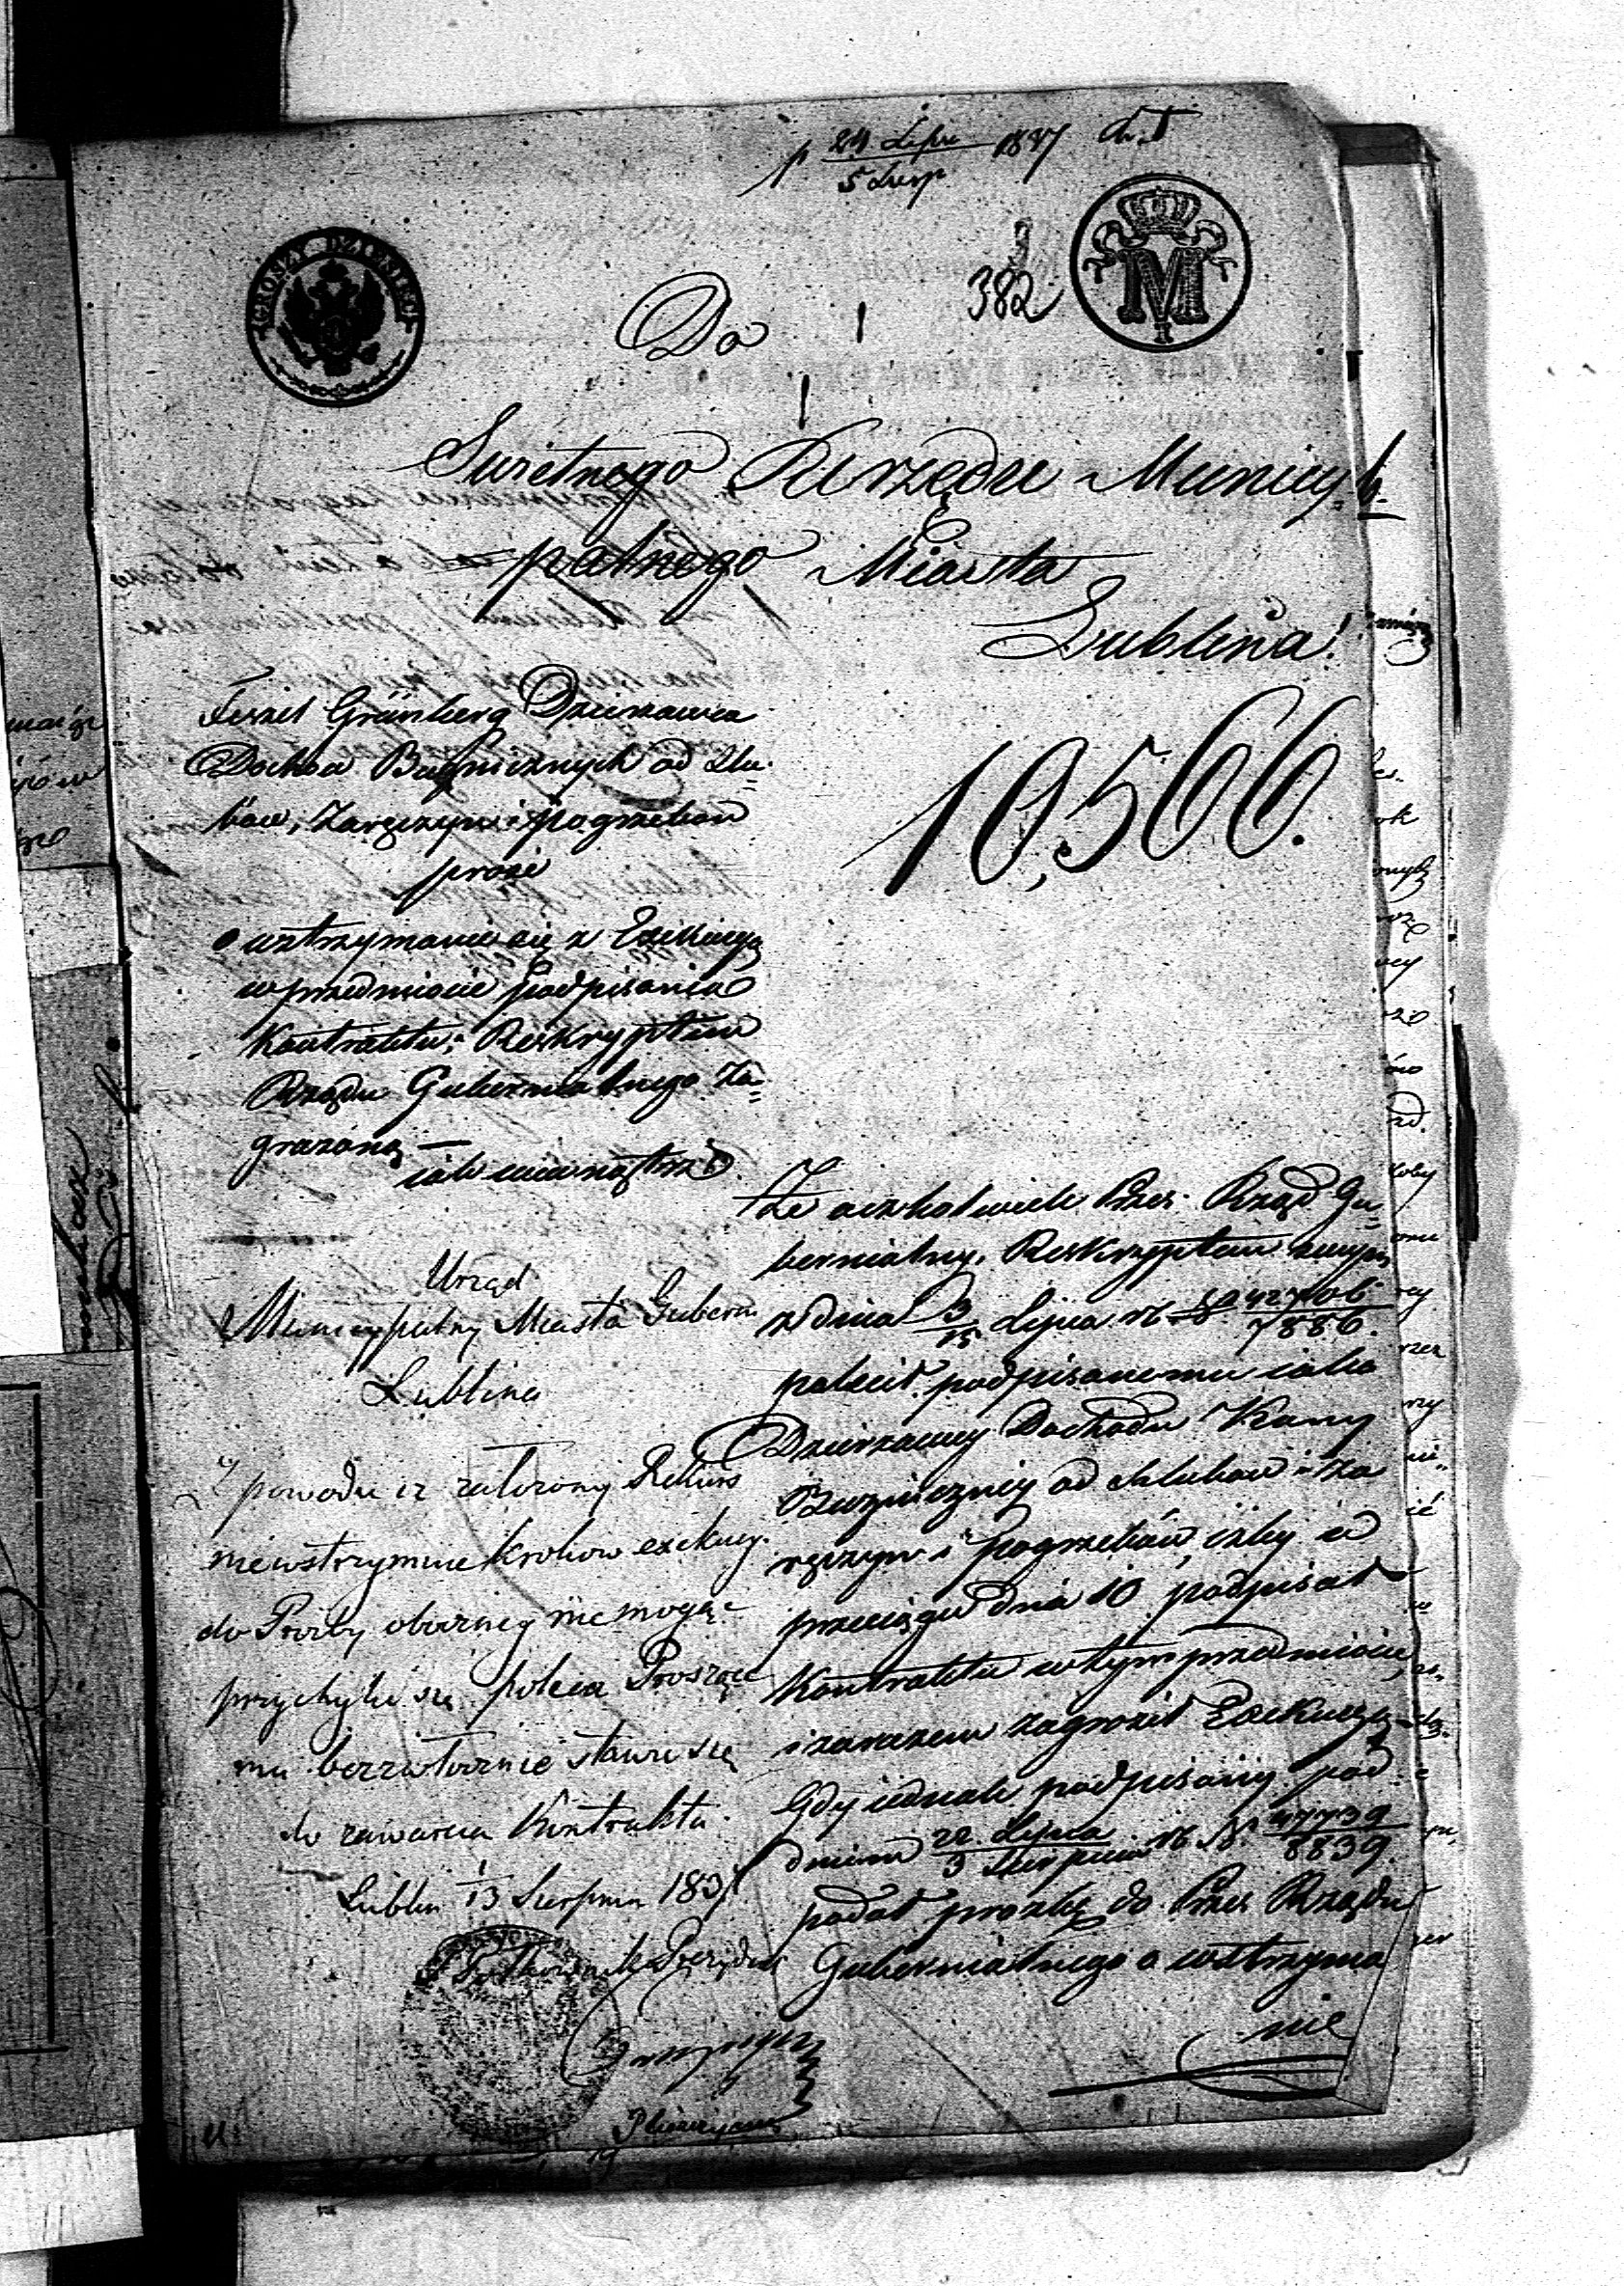 p 24 Lipu 1837
5 Sierp
GROSZY DZIESIĘĆ
M
I
382
Do
Świetnego Urzędu Municy-
palnego Miasta
Lublina!
10,566.
Grünberg Dzierzawca
Dochodu Bużnicznych od Szlu-
bów, Zaręczyn i pogrzebów
prosi
o wstrzymanie się z Exekucyą
w przedmiocie podpisania
Kontraktu, Reskryptem
Rządu Gubernialnego Za-
grażoną —
iak wewnątrz
Że aczkolwiek Rząd Gu-
bernialny, Reskryptem swym
z dnia 3/15 Lipca rb No 42706/7886.
polecił podpisanemu iako
Dzierzawcy Dochodu
Bużniczney od szlubów i za
ręczyn i Pogrzebów, iżby w
przeciągu dni 10 podpisał
Kontrakta w tym przedmiocie,
i zarazem zagroził Exekucyą
Gdy iednak podpisany pod
dniem 22 Lipca/3 Sierpnia rb No 47739/8839.
podał prozbę do Rządu
Gubernialnego o wstrzyma
nie
Urząd
Municypalny Miasta Gubern.
Lublina
Z powodu iż założony Rekurs
niewstrzymuie kroków exekucy.
do Prozby oboczney nie mogąc
przychylić się poleca Proszące
mu bezzwłocznie stawić się
do zawarcia Kontraktu.
Lublin 1/13 Sierpnia 1837
Prezydent